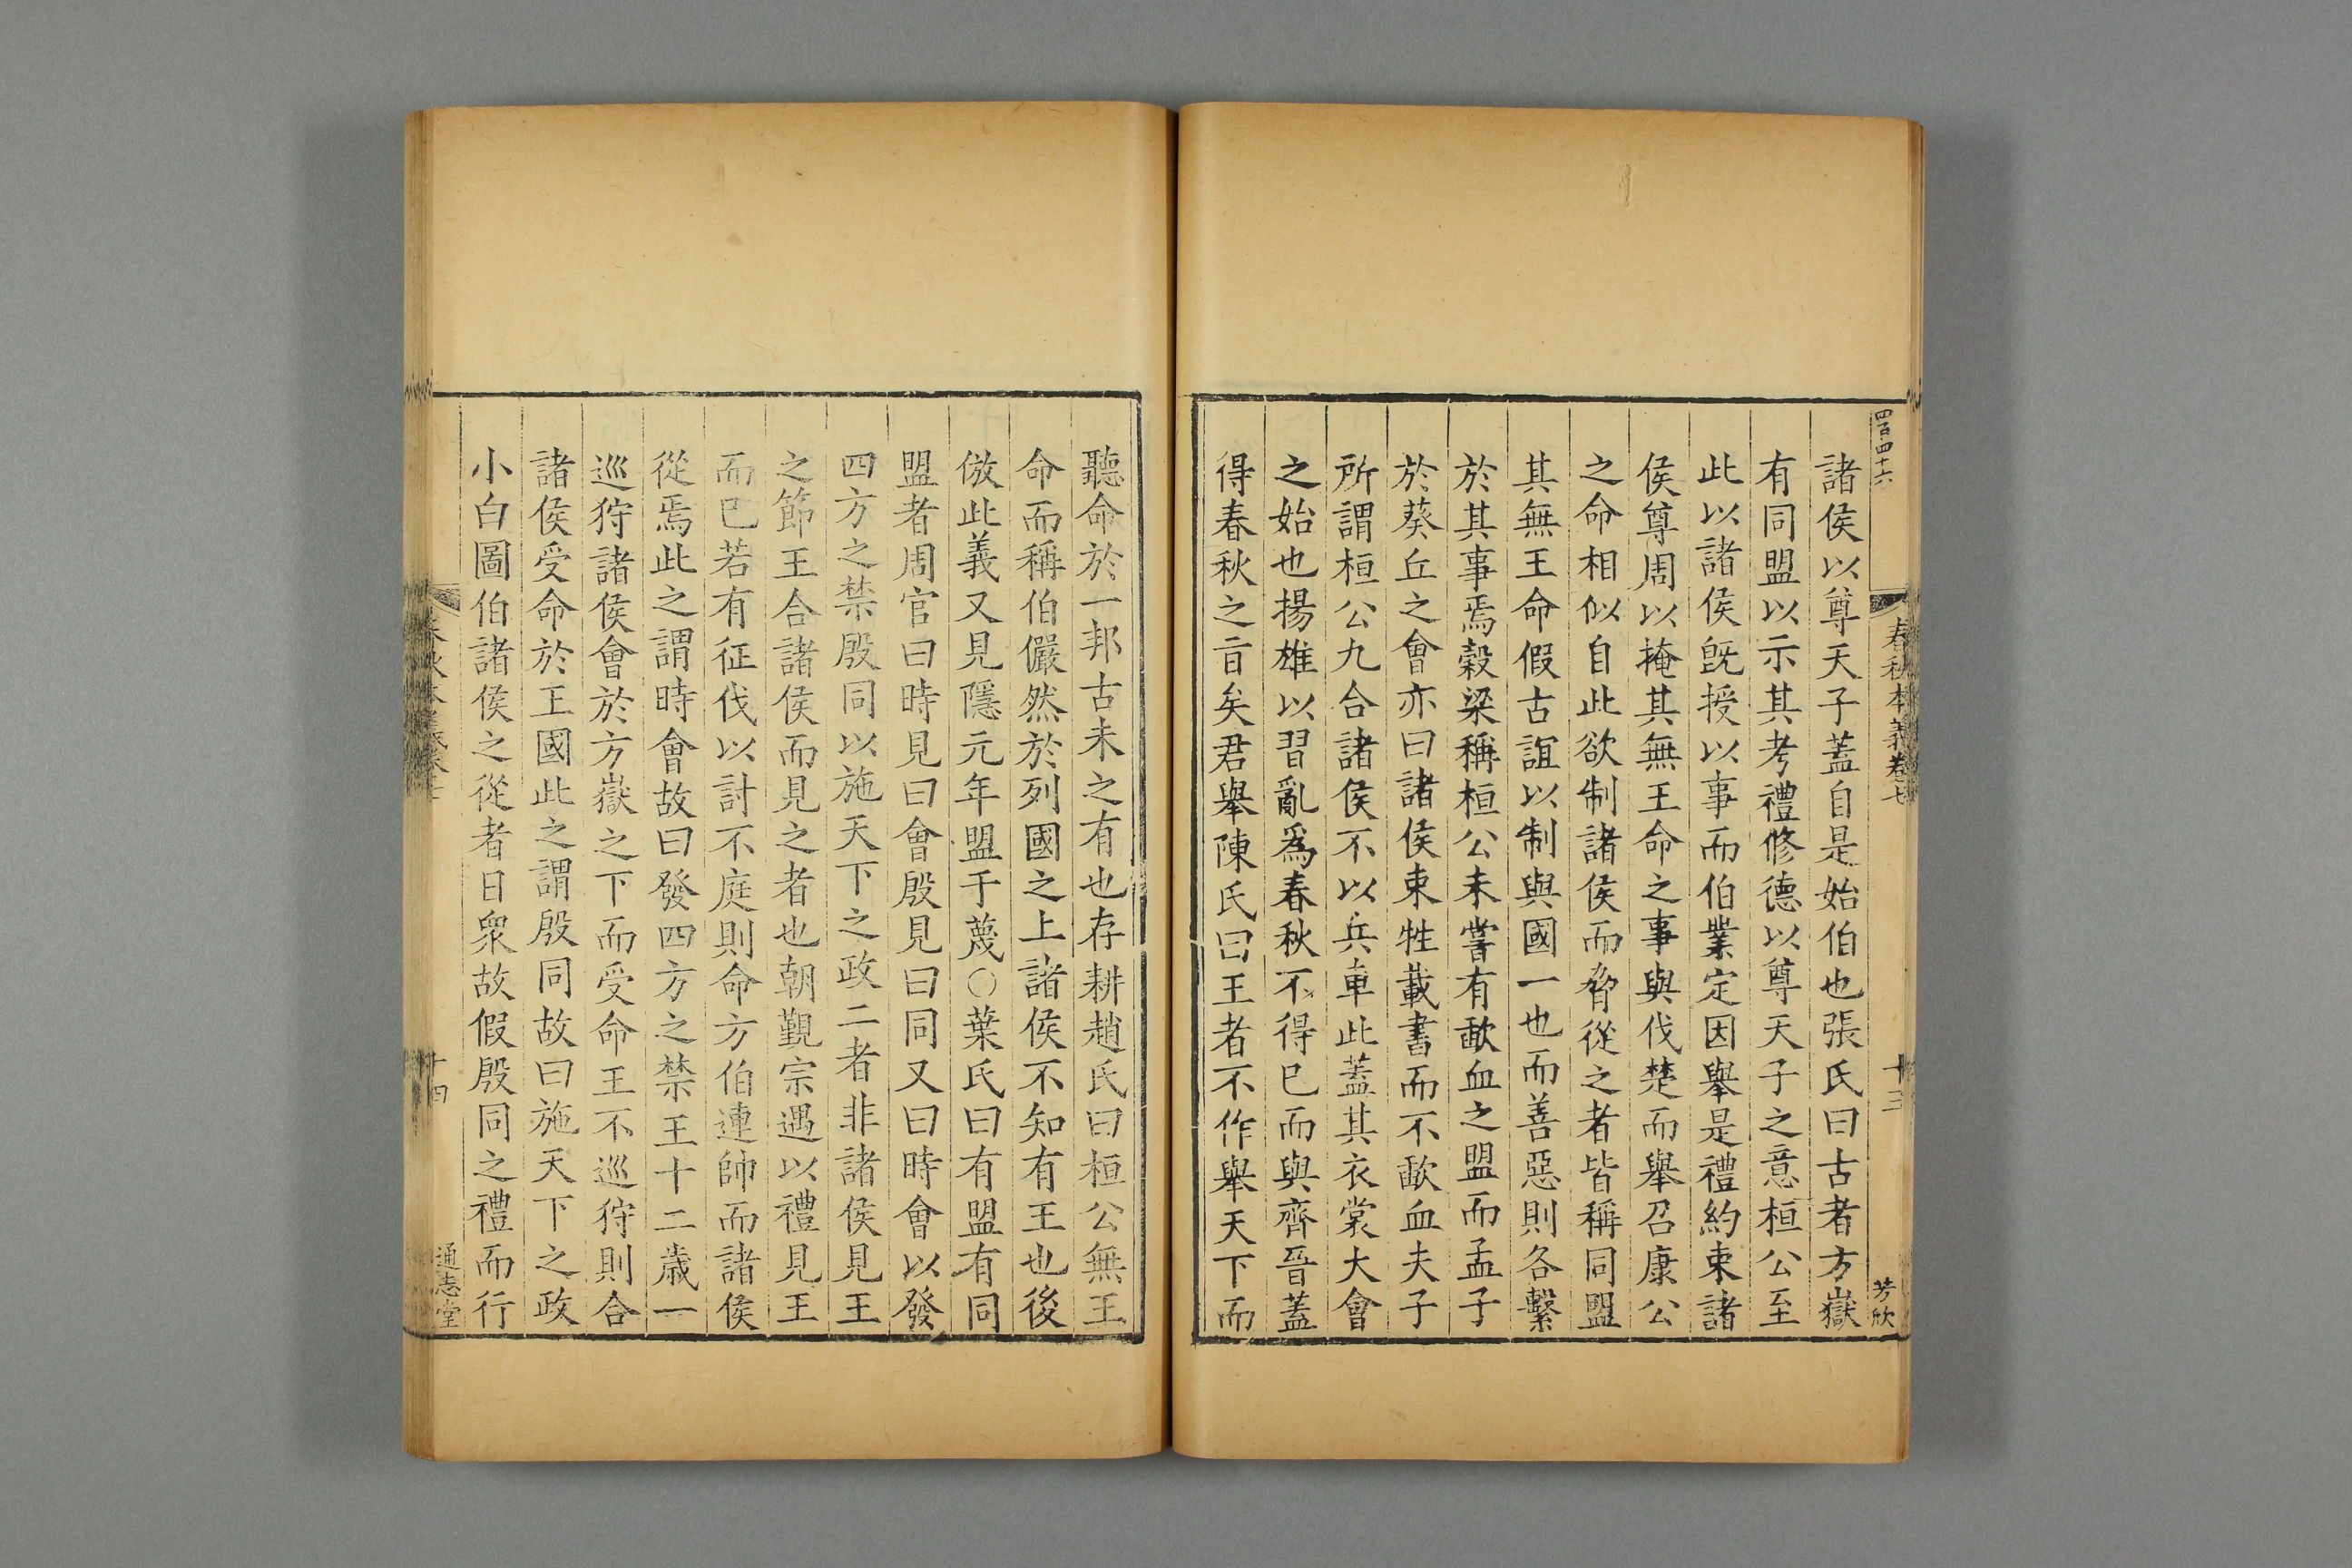 四百四十六
春秋本義卷七
十三
芳欣
諸侯以尊天子蓋自是始伯也張氏曰古者方嶽
有同盟以示其考禮修德以尊天子之意桓公至
此以諸侯旣授以事而伯業定因舉是禮約束諸
侯尊周以掩其無王命之事與伐楚而舉召康公
之命相似自此欲制諸侯而脅從之者皆稱同盟
其無王命假古誼以制與國一也而善惡則各繫
於其事焉穀梁稱桓公未嘗有歃血之盟而孟子
於葵丘之會亦曰諸侯束牲載書而不歃血夫子
所謂桓公九合諸侯不以兵車此蓋其衣裳大會
之始也揚雄以習亂爲春秋不得已而與齊晉蓋
得春秋之旨矣君舉陳氏曰王者不作舉天下而
聽命於一邦古未之有也存耕趙氏曰桓公無王
命而稱伯儼然於列國之上諸侯不知有王也後
倣此義又見隱元年盟于蔑○葉氏曰有盟有同
盟者周官曰時見曰會殷見曰同又曰時會以發
四方之禁殷同以施天下之政二者非諸侯見王
之節王合諸侯而見之者也朝覲宗遇以禮見王
而已若有征伐以討不庭則命方伯連帥而諸侯
從焉此之謂時會故曰發四方之禁王十二歲一
巡狩諸侯會於方嶽之下而受命王不巡狩則合
諸侯受命於王國此之謂殷同故曰施天下之政
小白圖伯諸侯之從者日衆故假殷同之禮而行
十四
通志堂